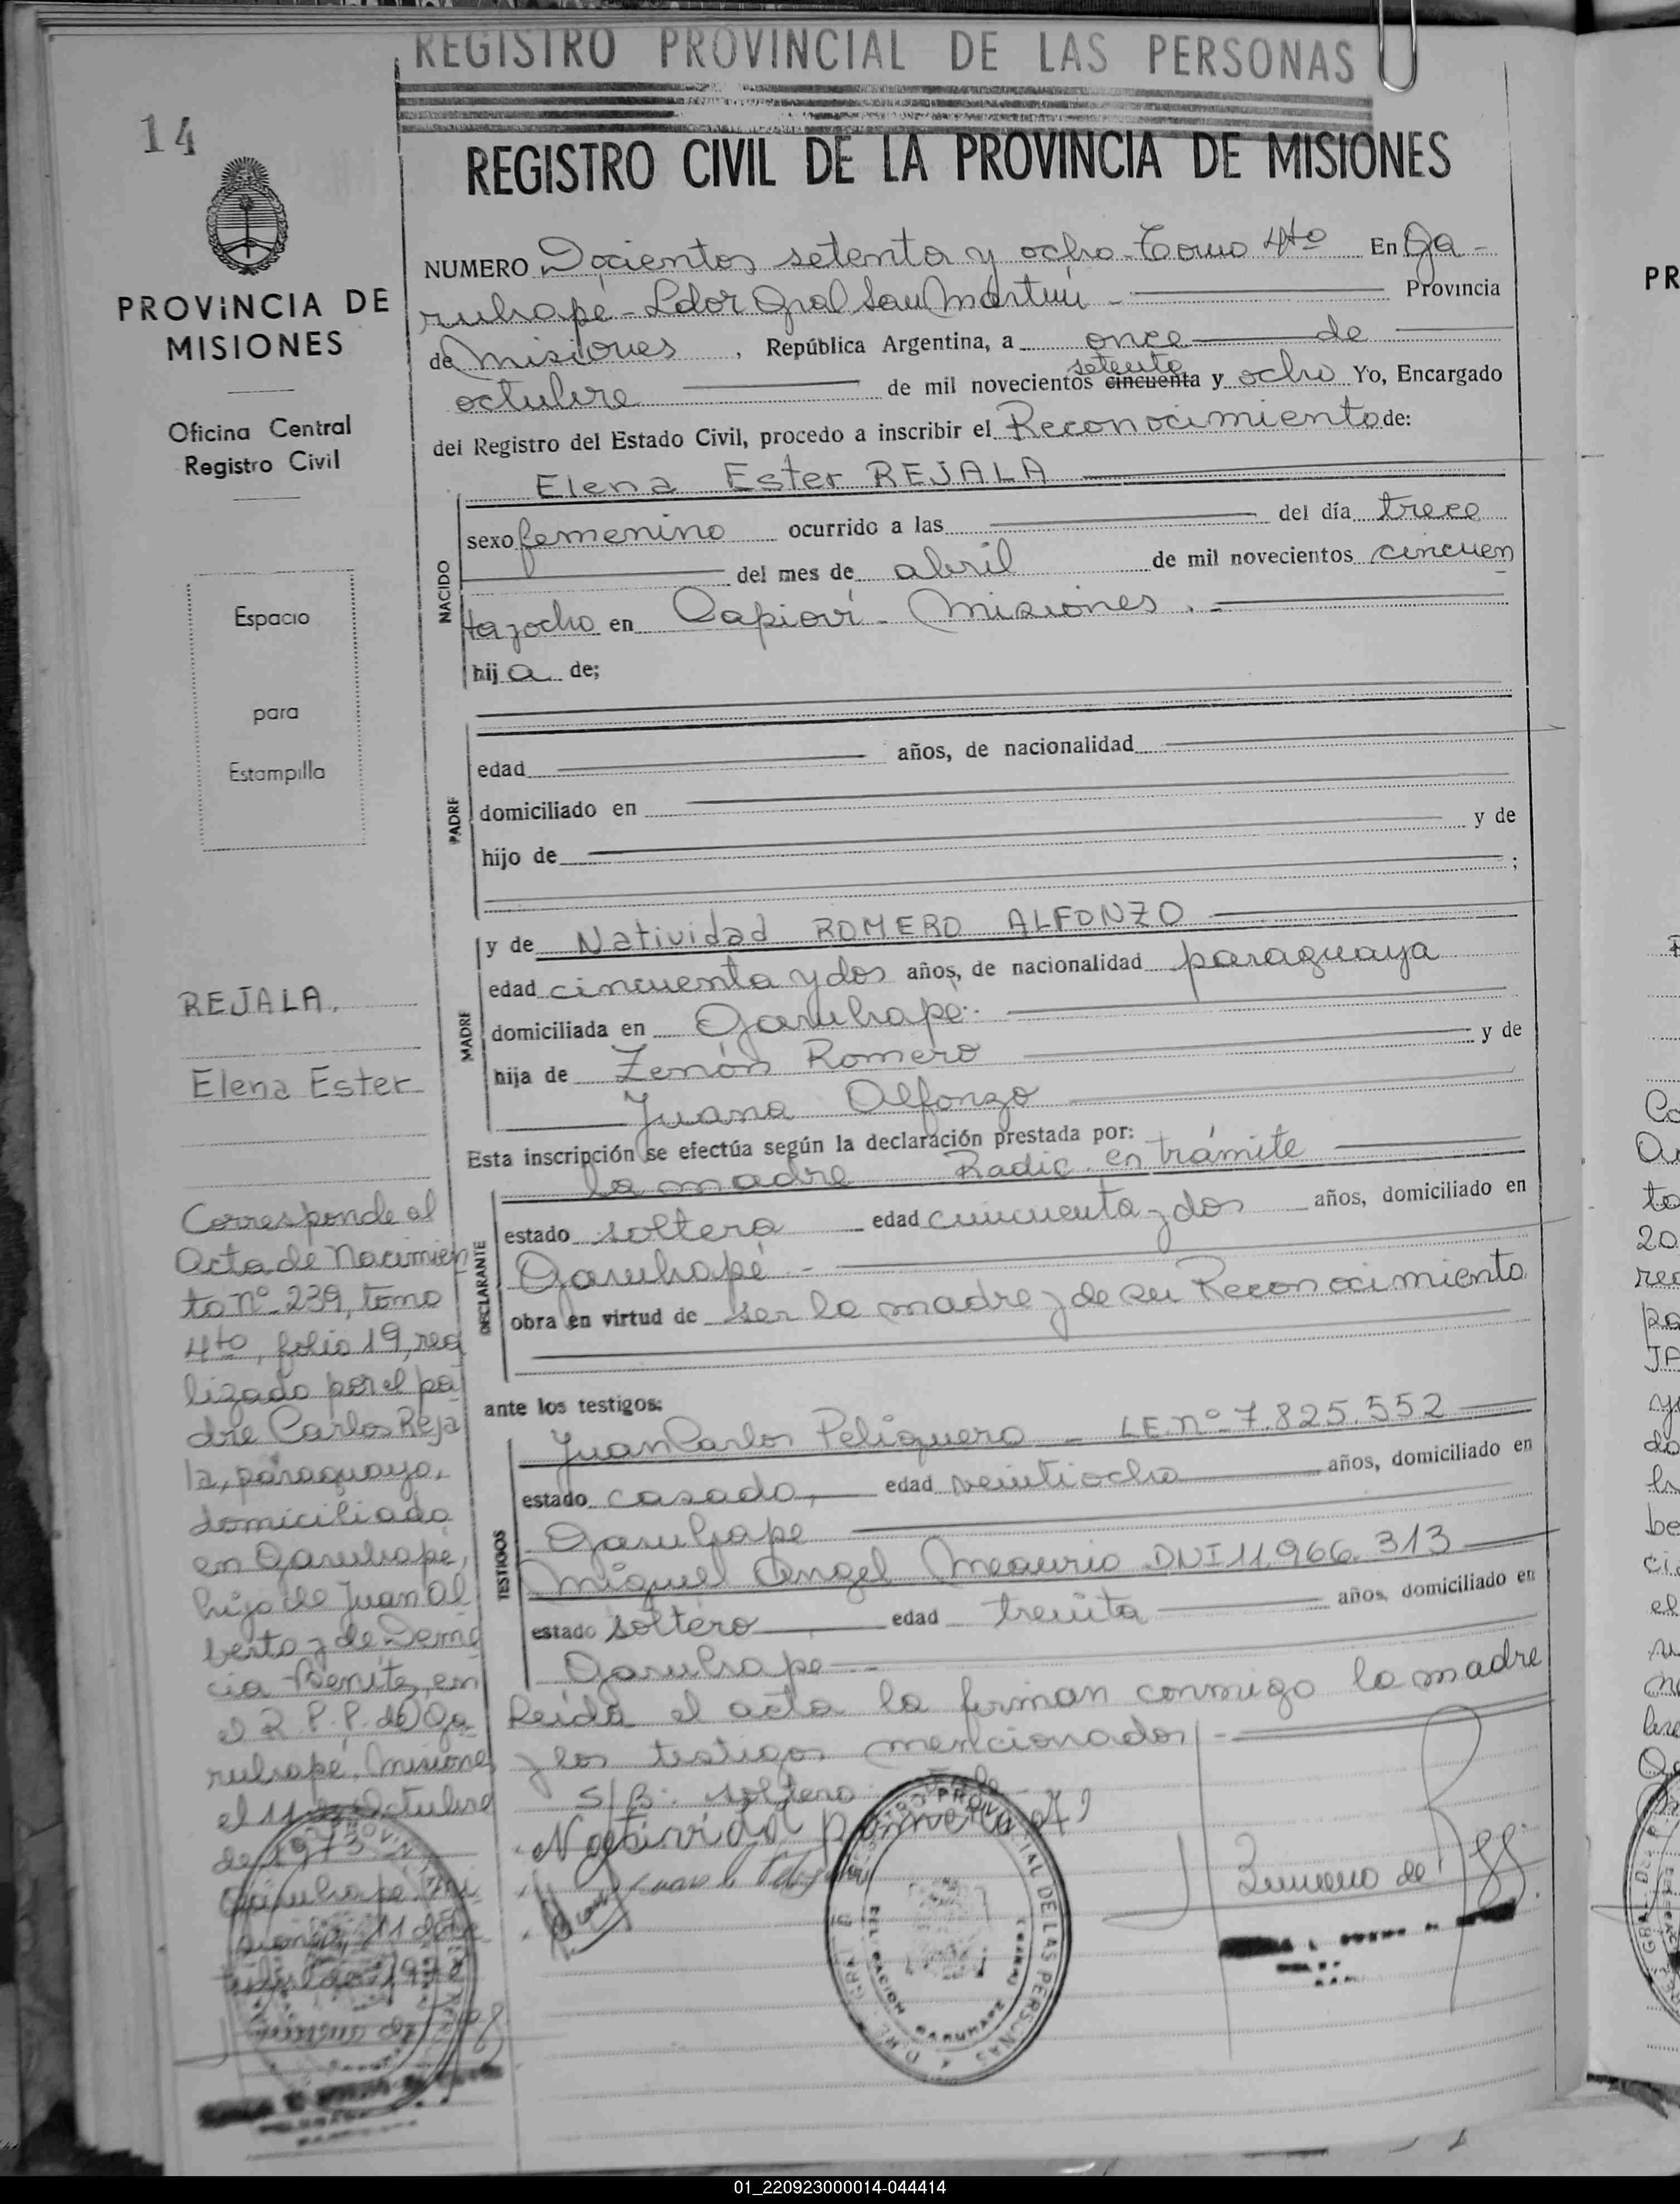 REGISTRO PROVINCIAL DE LAS PERSONAS
14
REGISTRO CIVIL DE LA PROVINCIA DE MISIONES
PROVINCIA DE
MISIONES
Oficina Central
Registro Civil
Espacio
para
Estampilla
NUMERO Docientos setenta y ocho - Tomo 4to En Ga-
ruhapé - Ldor Gral San Martín - Provincia
de Misiones, República Argentina, a once de
octubre de mil novecientos cincuenta setenta y ocho Yo, Encargado
del Registro del Estado Civil, procedo a inscribir el Reconocimiento de:
Elena Ester REJALA
NACIDO
sexo femenino ocurrido a las del día trece
del mes de abril de mil novecientos cincuen
ta y ocho en Capioví - Misiones. -
hija de;
PADRE
edad años, de nacionalidad
domiciliado en
hijo de y de
;
MADRE
y de Natividad ROMERO ALFONZO
edad cincuenta y dos años, de nacionalidad paraguaya
domiciliada en Garuhape.-
hija de Zenón Romero y de
Juana Alfonzo
Esta inscripción se efectúa según la declaración prestada por:
DECLARANTE
la madre Radic. en trámite
estado soltera edad cincuenta y dos años, domiciliado en
Garuhapé -
obra en virtud de ser la madre y de su Reconocimiento
ante los testigos:
TESTIGOS
Juan Carlos Peliquero - LE. nº 7.825.552
estado casado, edad veintiocho años, domiciliado en
Garuhape
Miguel Angel Meaurio DNI 11.966.313
estado soltero edad treinta años, domiciliado en
Garuhape
Leída el acta la firman conmigo la madre
y los testigos mencionados -
S/B: soltero
Natividad Romero A
REJALA.
Elena Ester
Corresponde al
Acta de Nacimien
to nº 239, tomo
4to, folio 19, rea
lizado por el pa
dre Carlos Reja
la, paraguayo,
domiciliado
en Garuhapé,
hijo de Juan Al
berto y de Deme
cia Benítez, en
el R.P.P. de Ga
ruhapé, Misiones
el 11 de Octubre
de 1973
Garuhapé, Mi
siones, 11 de Oc
tubre de 1978
REGISTRO PROVINCIAL DE LAS PERSONAS
DELEGACION GARUHAPE
PR
01_220923000014-044414